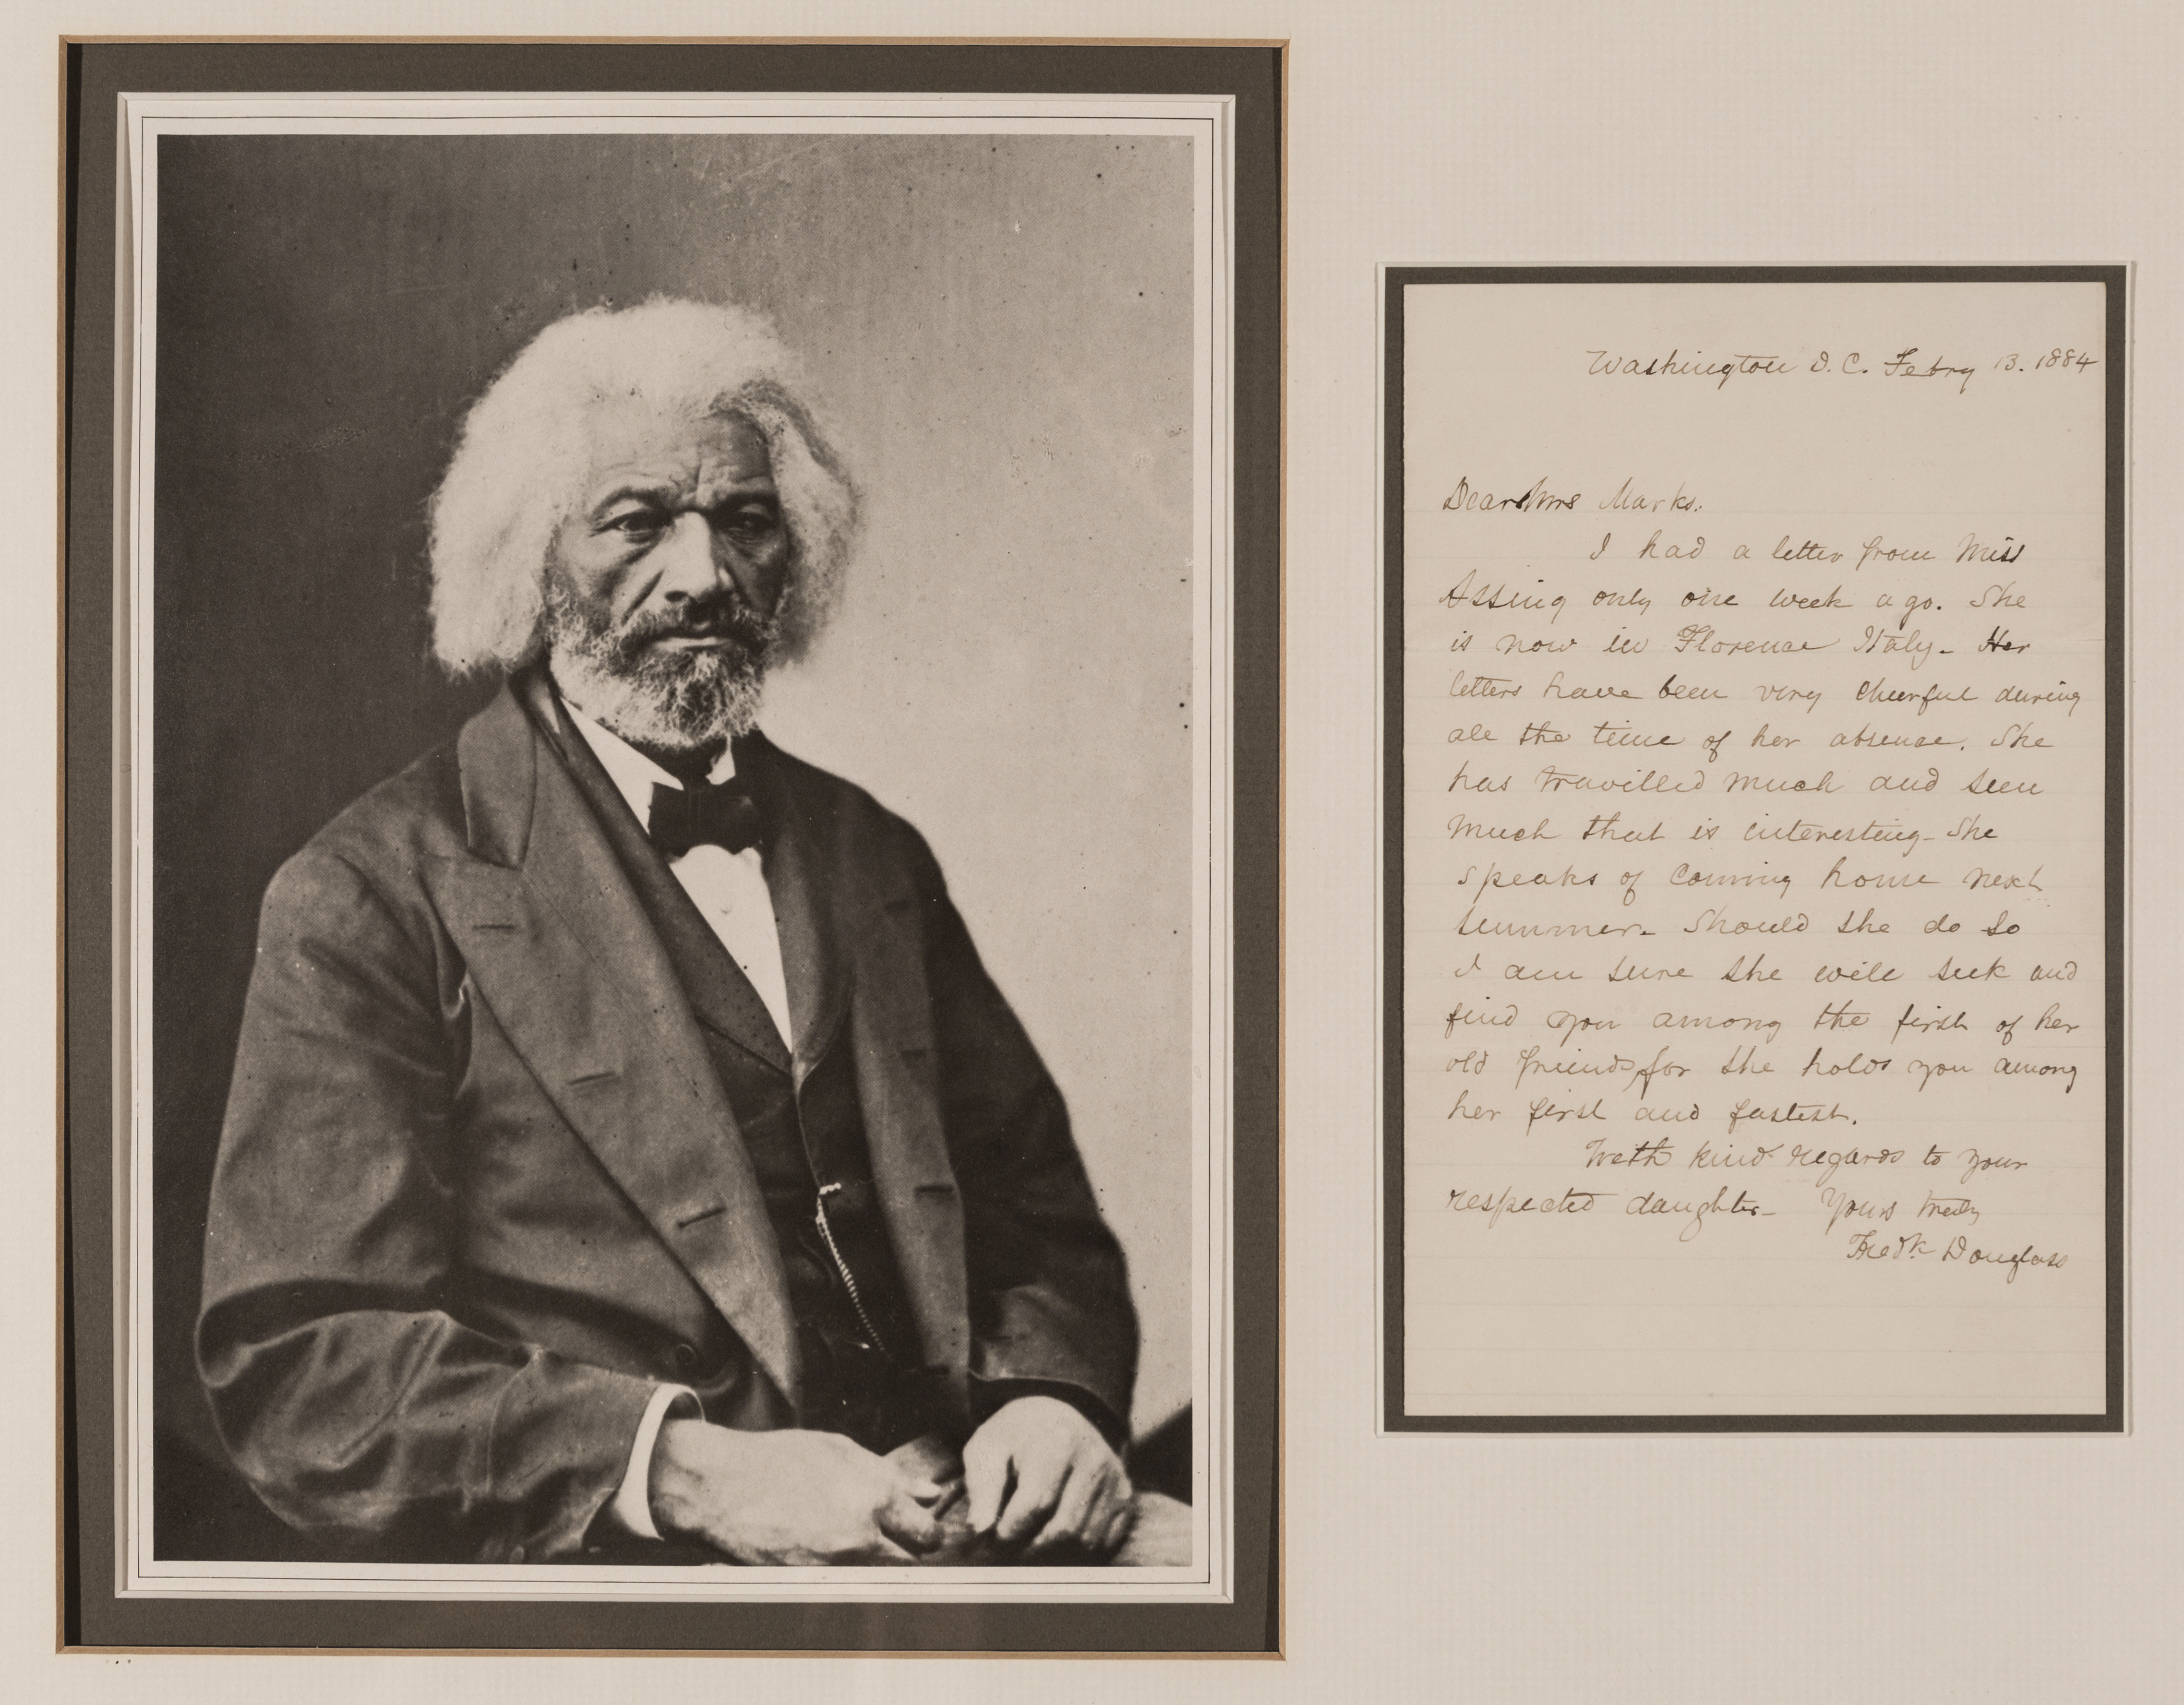 Washington D. C. Febry 13. 1884
Dear Mrs Marks.
I had a letter from Miss
Assing only one week ago. She
is now in Florence Italy. Her
letters have been very cheerful during
all the time of her absence. She
has travilled much and seen
much that is interesting - She
speaks of coming home next
summer. Should she do so
I am sure she will seek and
find you among the first of her
old friends, for she holds you among
her first and fastest.
With kind regards to your
respected daughter - Yours truly
Fredk Douglass